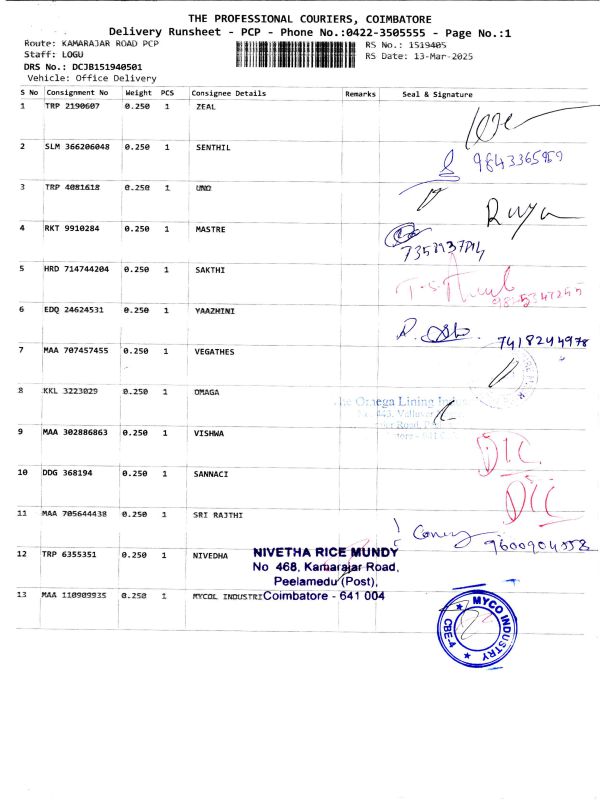 THE PROFESSIONAL COURIERS, COIMBATORE
Delivery Runsheet - PCP - Phone No.:0422-3505555 - Page No.:1
Route: KAMARAJAR ROAD PCP
RS No.: 1519405
Staff: LOGU
RS Date: 13-Mar-2025
DRS No.: DCJB151940501
Vehicle: Office Delivery
S No Consignment No Weight PCS Consignee Details Remarks Seal & Signature
1 TRP 2190607 0.250 1 ZEAL
2 SLM 366206048 0.250 1 SENTHIL
9843365989
3 TRP 4081618 0.250 1 UNO
4 RKT 9910284 0.250 1 MASTRE
5 HRD 714744204 0.250 1 SAKTHI
6 EDQ 24624531 0.250 1 YAAZHINI
7418244978
7 MAA 707457455 0.250 1 VEGATHES
8 KKL 3223029 0.250 1 OMAGA
The Omega Lining
9 MAA 302886863 0.250 1 VISHWA
10 DDG 368194 0.250 1 SANNACI
11 MAA 705644438 0.250 1 SRI RAJTHI
12 TRP 6355351 0.250 1 NIVEDHA
NIVETHA RICE MUNDY
No 468, Kamarajar Road,
Peelamedu (Post),
Coimbatore - 641 004
13 MAA 110909935 0.250 1 MYCOL INDUSTRI
MYCO INDUSTRY
CBE-4